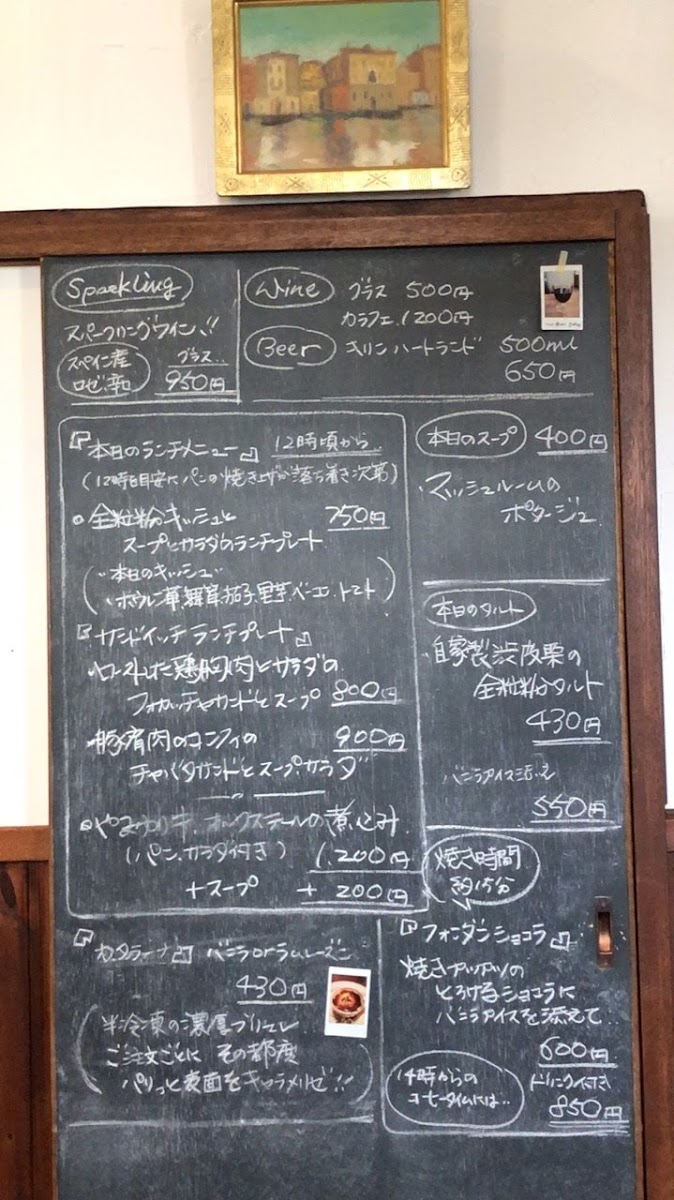 Sparkling
スパークリングワイン!!
スペイン産
ロゼ、辛口
グラス..
950円
Wine グラス 500円
カラフェ 1200円
Beer キリン ハートランド 500ml
650円
『本日のランチメニュー』 12時頃から..
(12時目安に パンの焼き上がり 落ち着き次第)
全粒粉のキッシュと 750円
スープとサラダのランチプレート
"本日のキッシュ"
ホウレン草、舞茸、茄子、里芋、ベーコン、トマト
『サンドイッチランチプレート』
ローストした鶏胸肉とサラダの
フォカッチャサンドとスープ 800円
豚肩肉のコンフィの 900円
チャバタサンドとスープ、サラダ
牛、オックステールの煮込み
(パン、サラダ付き) 1,200円
+スープ + 200円
本日のスープ 400円
マッシュルームの
ポタージュ
本日のタルト
自家製渋皮栗の
全粒粉タルト
430円
バニラアイス添え
550円
焼き時間
約15分
『フォンダンショコラ』
焼きアツアツの
とろけるショコラに
バニラアイスを添えて...
600円
14時からの
コーヒータイムには...
ドリンク付き
850円
『カタラーナ』 バニラorラムレーズン
430円
半冷凍の濃厚ブリュレ
ご注文ごとに その都度
パリっと表面をキャラメリゼ!!